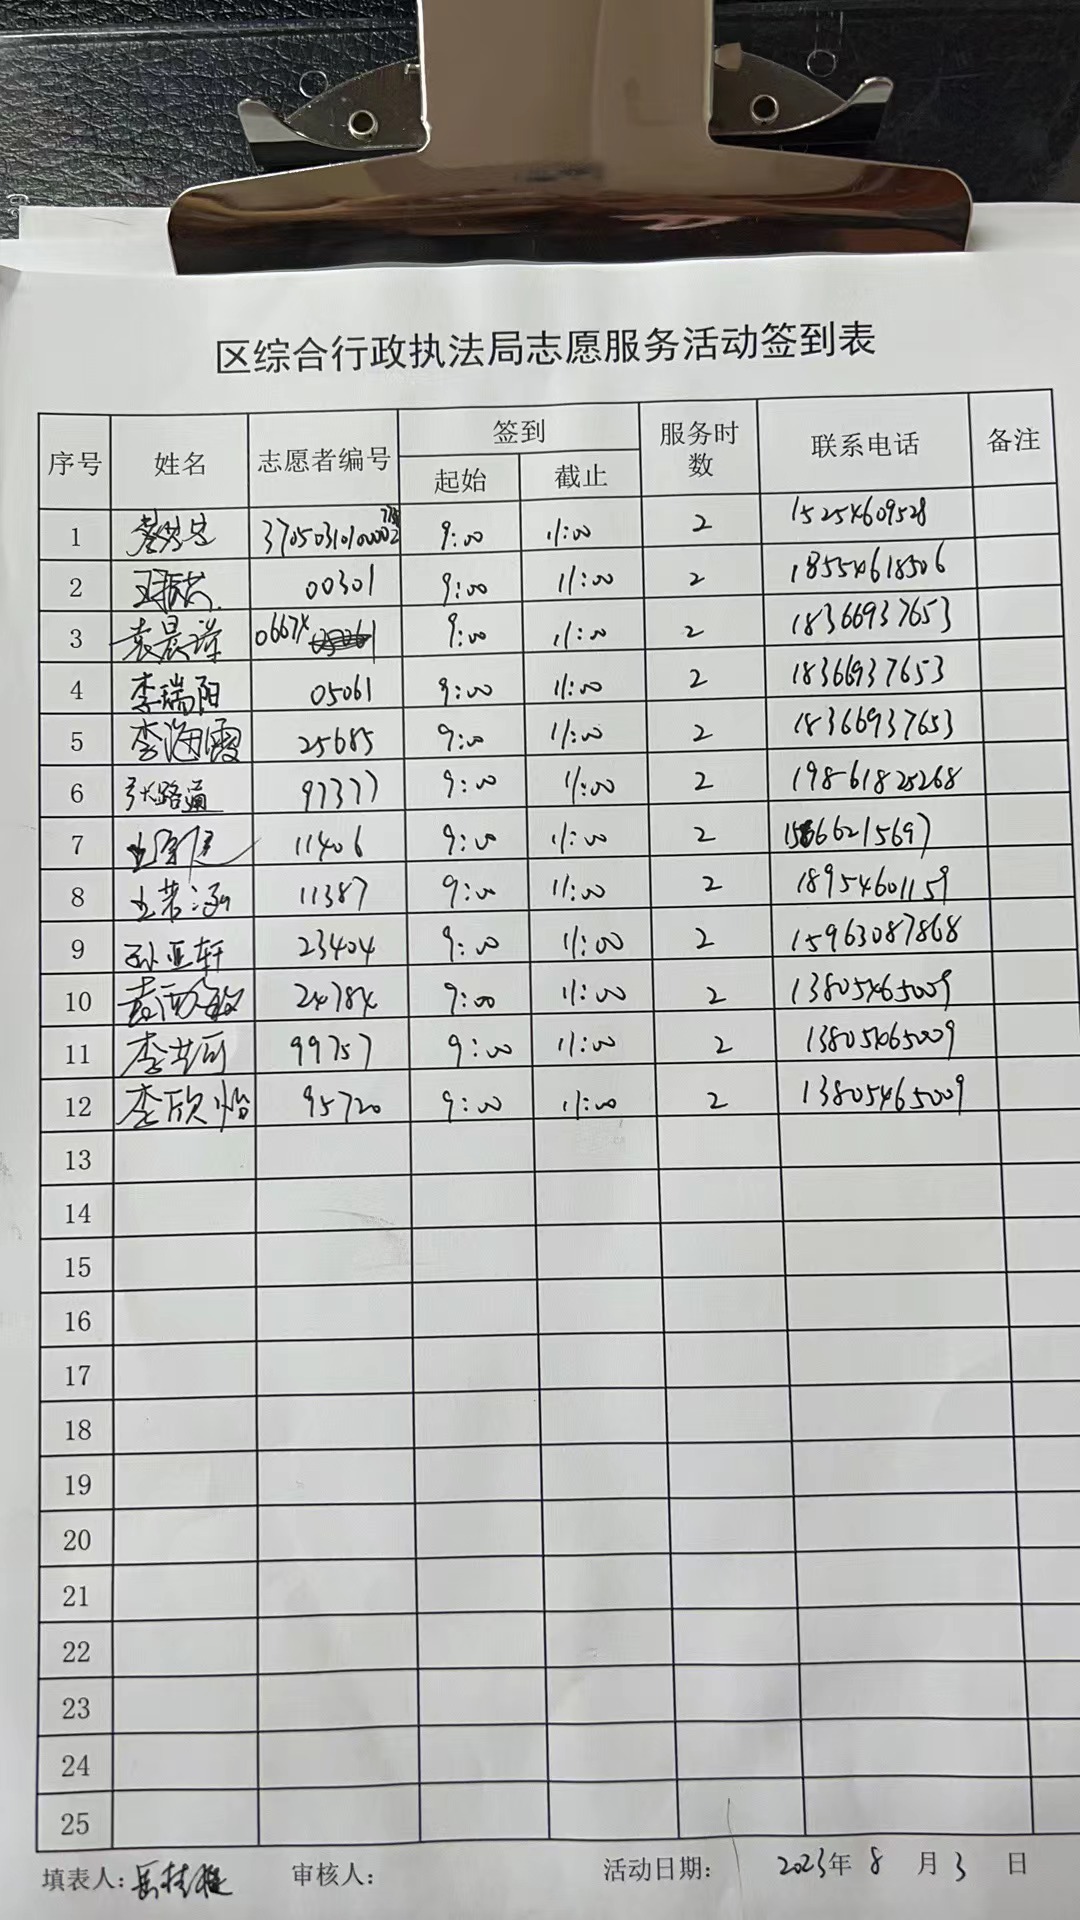 区综合行政执法局志愿服务活动签到表
序号 姓名 志愿者编号 签到 服务时数 联系电话 备注
起始 截止
1 9:00 11:00 2 15254609528
2 王振 00301 9:00 11:00 2 18554618506
3 袁晨 0667X 9:00 11:00 2 18366937653
4 李瑞阳 05061 9:00 11:00 2 18366937653
5 李海霞 25685 9:00 11:00 2 18366937653
6 张路通 97377 9:00 11:00 2 19861825268
7 11406 9:00 11:00 2 15666215697
8 王若涵 11387 9:00 11:00 2 18954601159
9 孙亚轩 23404 9:00 11:00 2 15963087868
10 2478X 9:00 11:00 2 13805465009
11 李 99757 9:00 11:00 2 13805465009
12 李欣怡 95720 9:00 11:00 2 13805465009
13
14
15
16
17
18
19
20
21
22
23
24
25
填表人: 审核人: 活动日期: 2023年 8 月 3 日